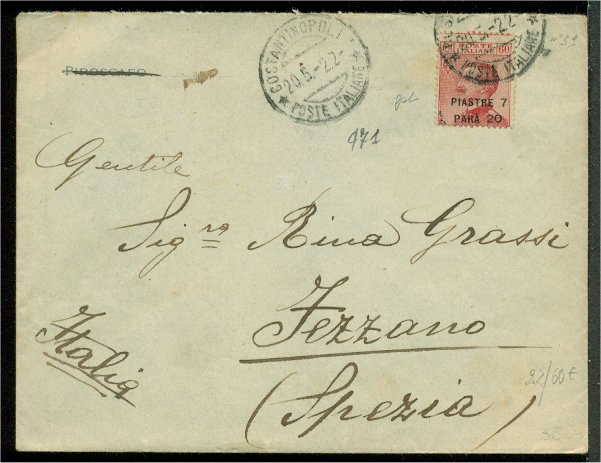 PIROSCAFO
COSTANTINOPOLI
20.5-22-
★ POSTE ITALIANE ★
20.5-22-
★ POSTE ITALIANE ★
POSTE ITALIANE 60
PIASTRE 7
PARÀ 20
471
Gentile
Sigra Rina Grassi
Fezzano
(Spezia)
Italia
22/60€